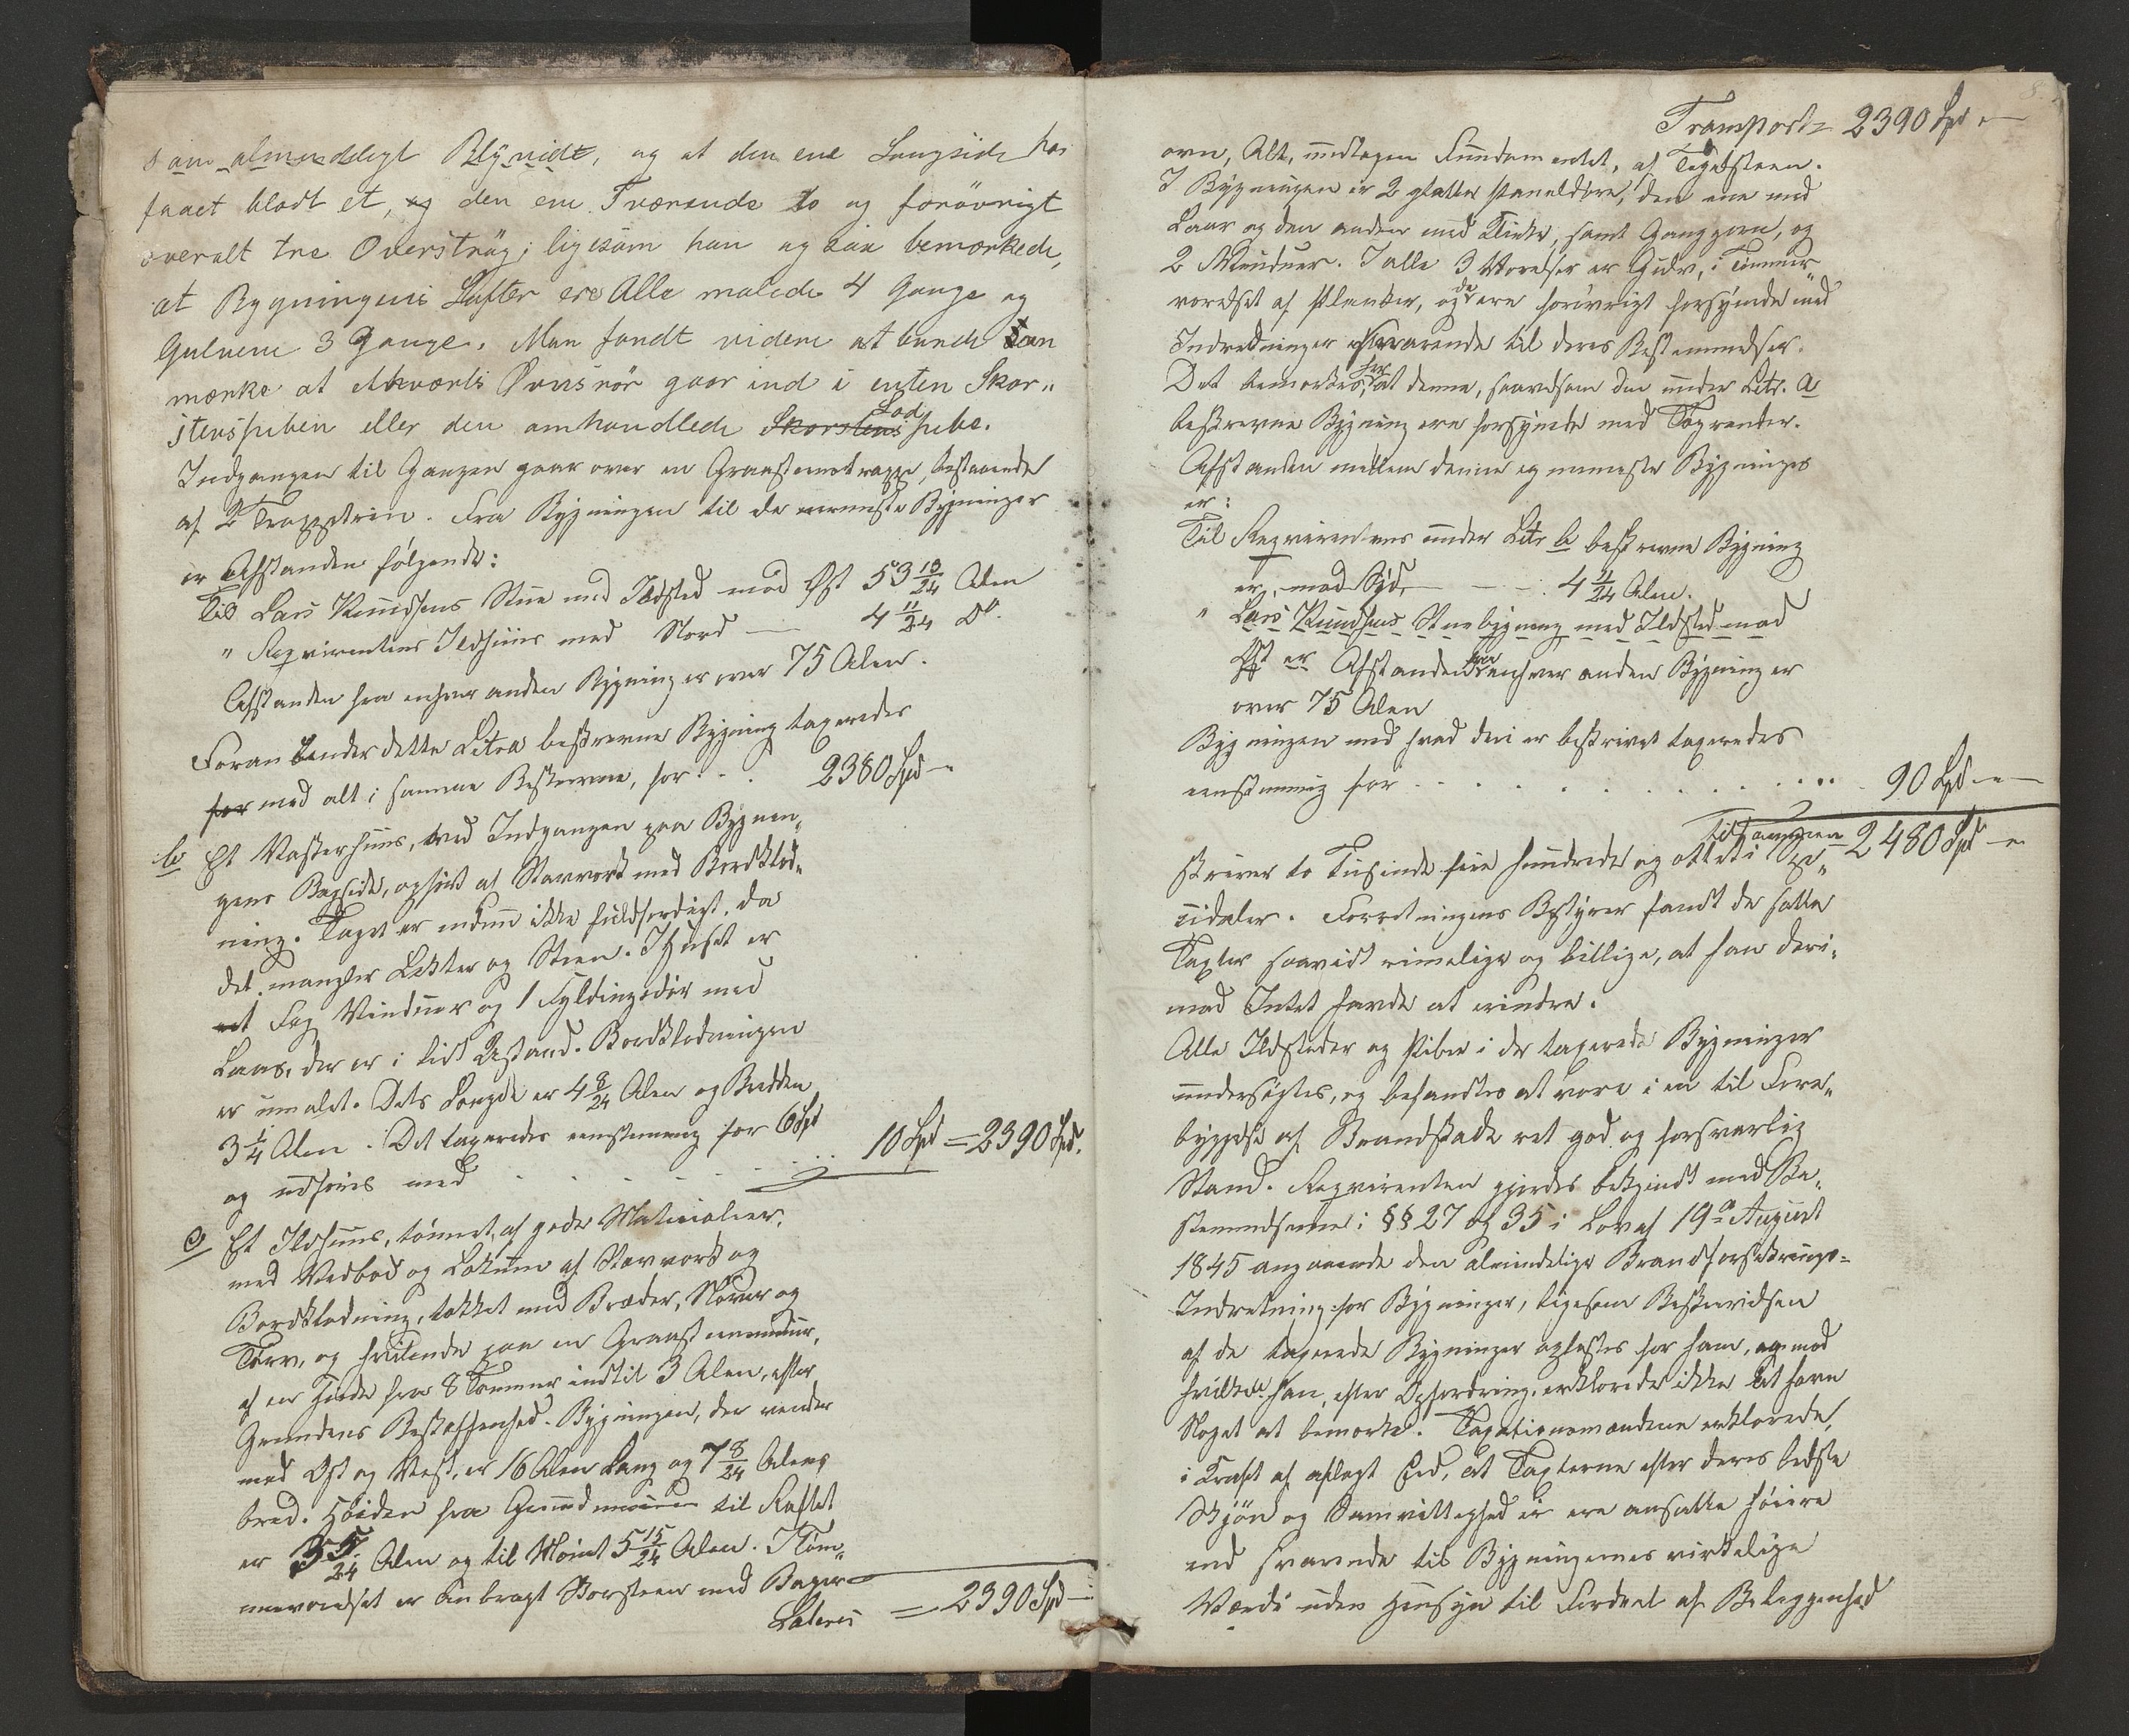 som almindeligt Blyvidt, og at den ene Langside har
faaet blodt et, og den ene Tværende to og forövrigt
overalt tre Overströg; ligesom han og saa bemærkede,
at Bygningens Lofter ere Alle malede 4 Gange og
Gulvene 3 Gange. Man fandt videre at burde
mærke at Ovnsrör gaar ind i enten Skor„
stenspiben eller den omhandlede Skorstens Lodpibe.
Indgangen til Gangen gaar over en Graastenstrappe, bestaaende
af 2 Trappetrin. Fra Bygningen til de nærmeste Bygninger
er Afstanden følgende:
Til Lars Knudsens Stue med Ildsted mod Øst 53 10/24 Alen
" Reqvirentens Ildhuus mod Nord — 4 11/24 Do.
Afstanden fra enhver anden Bygning er over 75 Alen.
Foran under dette Litra beskrevne Bygning taxeredes
for med alt i samme Beskrevne, for . . . 2380 Spd —"
b Et Vaskerhuus, ved Indgangen paa Bygnin„
gens Bagside, opført af Stavværk med Bordklæd„
ning. Taget er endnu ikke fuldfærdigt, da
det mangler Lekter og Steen. I Huset er
et Fag Vinduer og 1 Fyldingsdör med
Laas, der er i Stand. Bordklædningen
er umalet. Dets Længde er 4 8/24 Alen og Bredden
3 1/4 Alen. Det taxeredes eenstemmig for
og udføres med . . . . . . 10 Spd = 2390 Spd.
c Et Ildhuus, tømret, af gode Materialier,
med Vedbod og Lokum af Stavværk og
Bordklædning, tækket med Bræder, Næver og
Törv, og hvilende paa en Graasteensmuur,
af en Høide fra 8 Tommer indtil 3 Alen, efter
Grundens Beskaffenhed. Bygningen, der vender
mod Øst og Vest, er 16 Alen lang og 7 8/24 Alen
bred. Høiden fra Grundmuuren til Raftet
er 3 5/24 Alen og til Mønet 5 15/24 Alen. I Töm„
merværelset er anbragt Skorsteen med Bager-
Lateris = 2390 Spd —
Transport = 2390 Spd "—
ovn, Alt, undtagen Fundamentet, af Teglsteen.
I Bygningen er 2 glatte Paneldøre, den ene med
Laas og den anden med Klinke, samt Gangdøren, og
2 Vinduer. I alle 3 Værelser er Gulv, i Tømmer„
værelset af Planker, og de ere forøvrigt forsynede med
Indretninger svarende til deres Bestemmelser.
Det bemærkes her, at denne, saavelsom den under Litr. a
beskrevne Bygning ere forsynede med Tagrender.
Afstanden mellem denne og nærmeste Bygninger
er:
Til Reqvirentens under Litr b beskrevne Bygning
er, mod Syd, — — 4 4/24 Alen.
" Lars Knudsens Stuebygning med Ildsted mod
Øst er Afstanden fra enhver anden Bygning er
over 75 Alen
Bygningen med hvad deri er beskrivet taxeredes
eenstemmig for . . . . . . . . . . . 90 Spd —"—
tilsammen 2480 Spd —"
skriver to Tusinde fire hundrede og otteti Spe„
ciedaler. Forretningens Bestyrer fandt de satte
Taxter saavidt rimelige og billige, at han deri„
mod Intet havde at erindre.
Alle Ildsteder og Piber i de taxerede Bygninger
undersøgtes, og befandtes at være i en til Fore„
byggelse af Brandskade ret god og forsvarlig
Stand. Reqvirenten gjordes bekjendt med Be„
stemmelserne i §§ 27 og 35 i Lov af 19de August
1845 angaaende den almindelige Brandforsikrings=
Indretning for Bygninger, ligesom Beskrivelsen
af de taxerede Bygninger oplæstes for ham, og mod
hvilken han, efter Opfordring, erklærede ikke at have
Noget at bemærke. Taxationsmændene erklærede,
i Kraft af aflagt Eed, at Taxterne efter deres bedste
Skjön og Samvittighed ei ere ansatte høiere
end svarende til Bygningernes virkelige
Værdi uden Hensyn til Fordeel af Beliggenhed